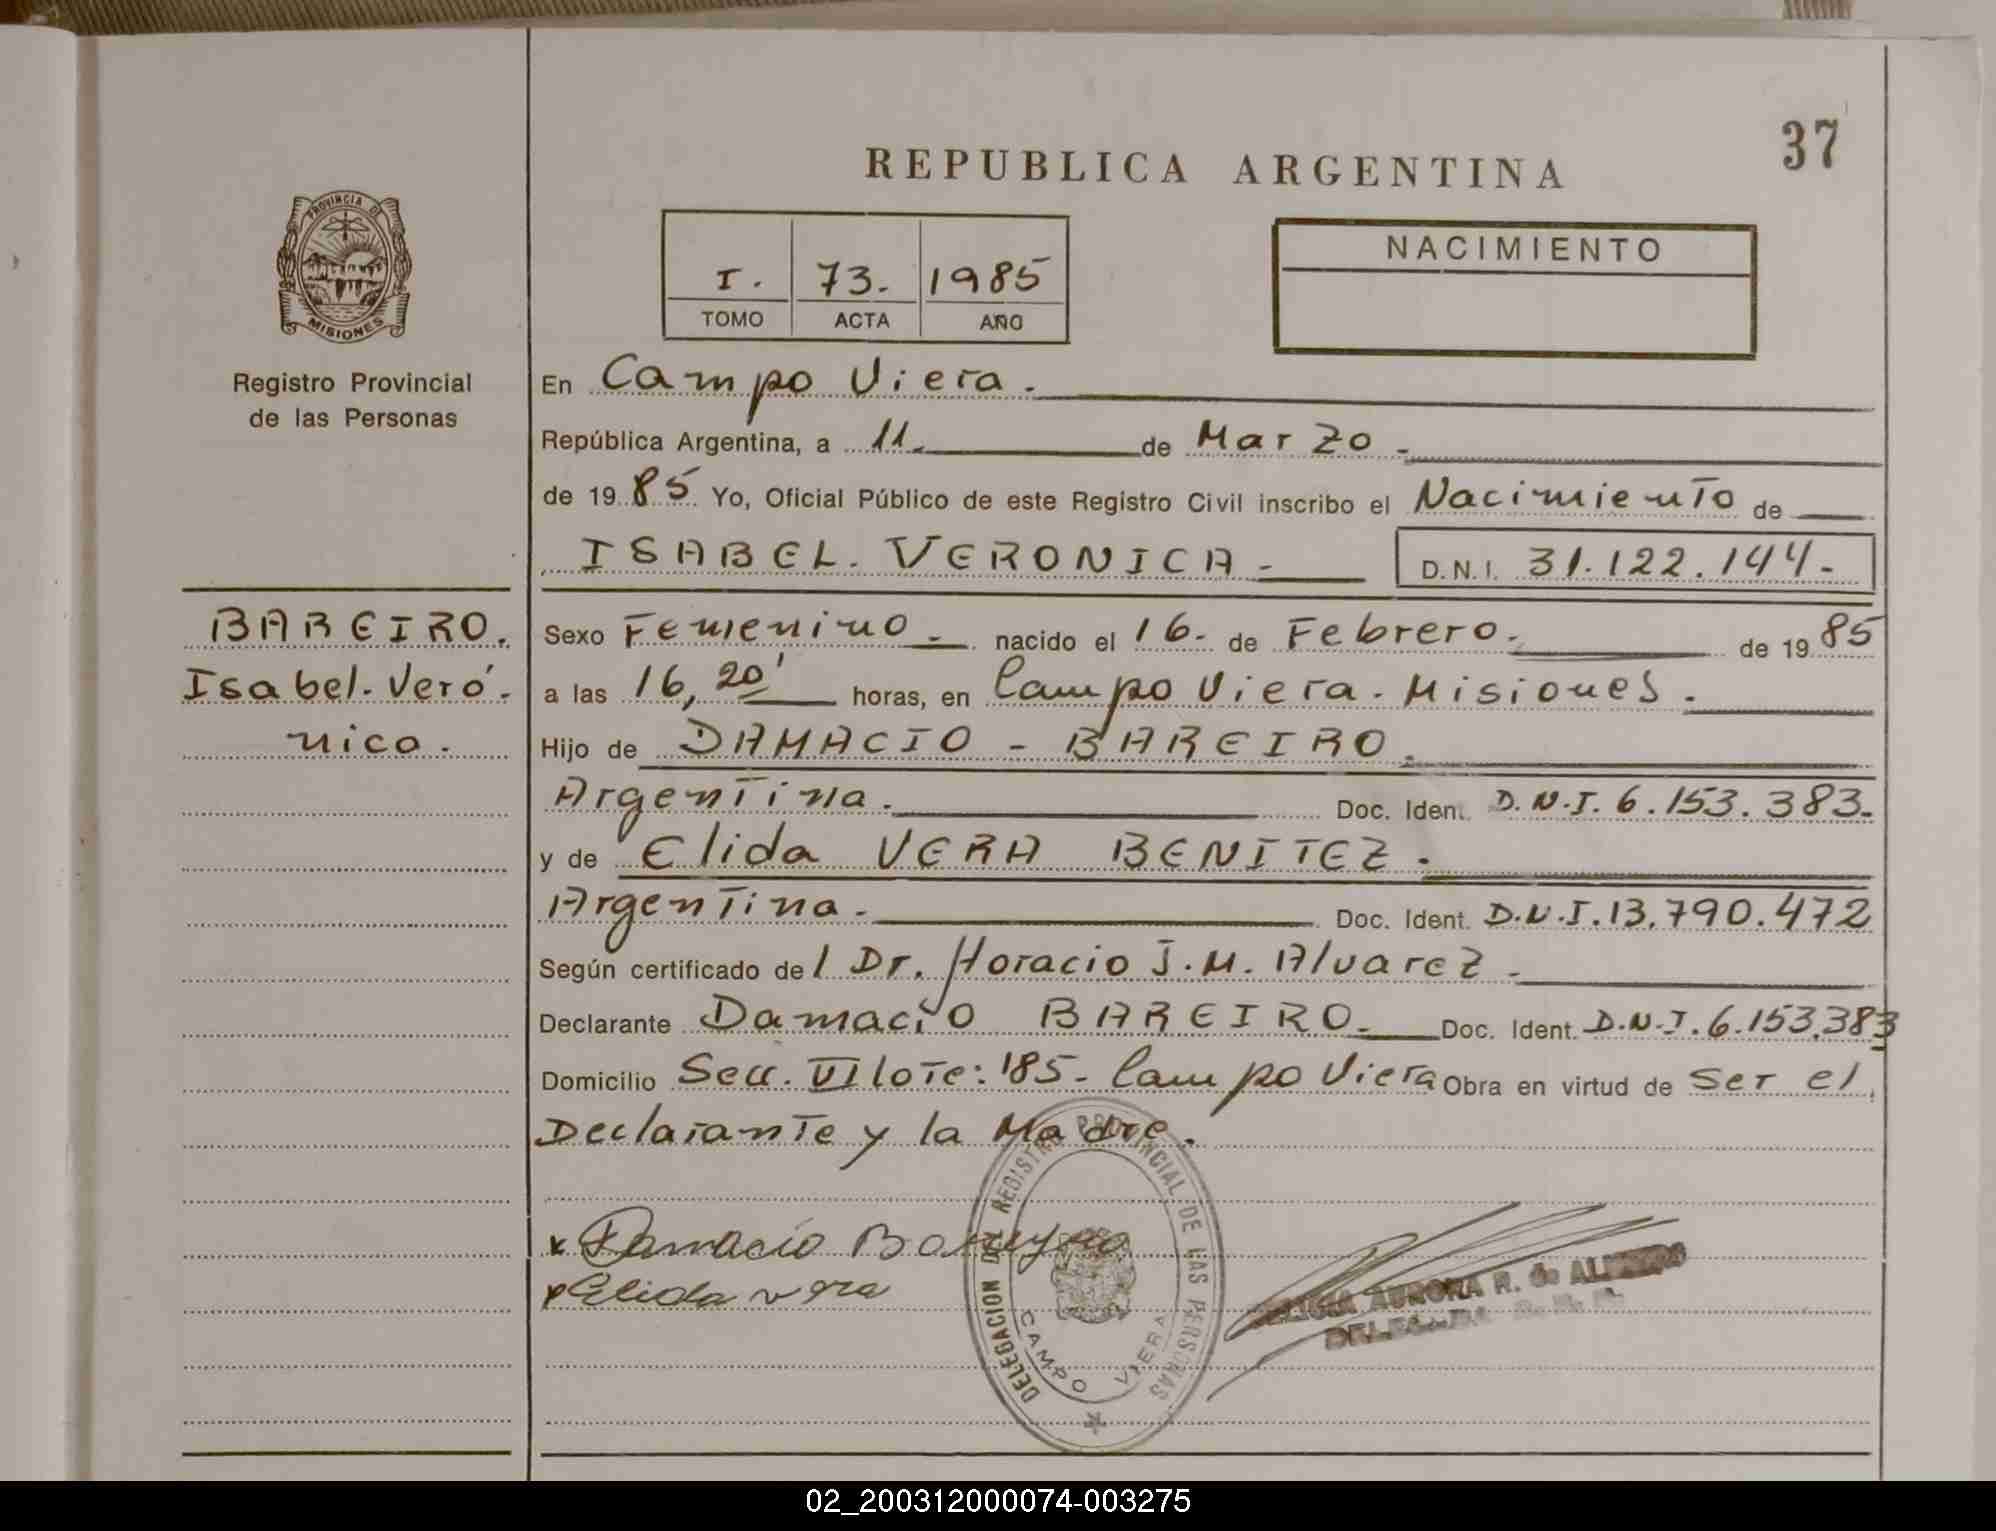 37
REPUBLICA ARGENTINA
PROVINCIA DE
MISIONES
Registro Provincial
de las Personas
I. 73. 1985
TOMO ACTA AÑO
NACIMIENTO
En Campo Viera.
República Argentina, a 11 de Marzo
de 1985 Yo, Oficial Público de este Registro Civil inscribo el Nacimiento de
ISABEL. VERONICA - D.N.I. 31.122.144-
BAREIRO.
Isabel. Veró-
nica.
Sexo Femenino - nacido el 16- de Febrero. de 1985
a las 16,20' horas, en Campo Viera. Misiones.
Hijo de DAMACIO - BAREIRO.
Argentina. Doc. Ident. D.N.I. 6.153.383-
y de Elida VERA BENITEZ.
Argentina. Doc. Ident. D.N.I. 13.790.472
Según certificado del Dr. Horacio J.M. Alvarez -
Declarante Damacio BAREIRO. Doc. Ident. D.N.I. 6.153.383
Domicilio Secc. VI lote: 185- Campo Viera Obra en virtud de Ser el
Declarante y la Madre.
x Damacio Bareyro
x Elida vera
DELEGACION DEL REGISTRO PROVINCIAL DE LAS PERSONAS
CAMPO VIERA
AURORA R. de
02_200312000074-003275